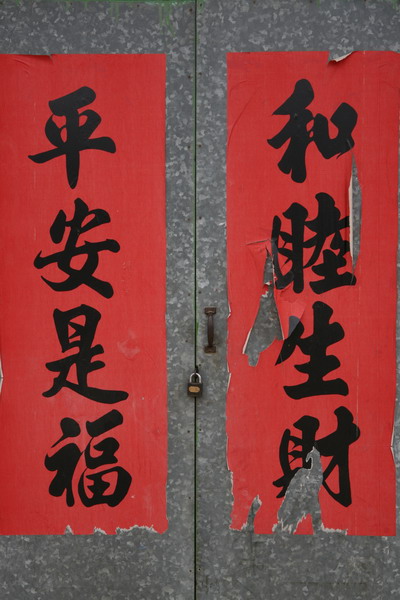 和睦生財
平安是福